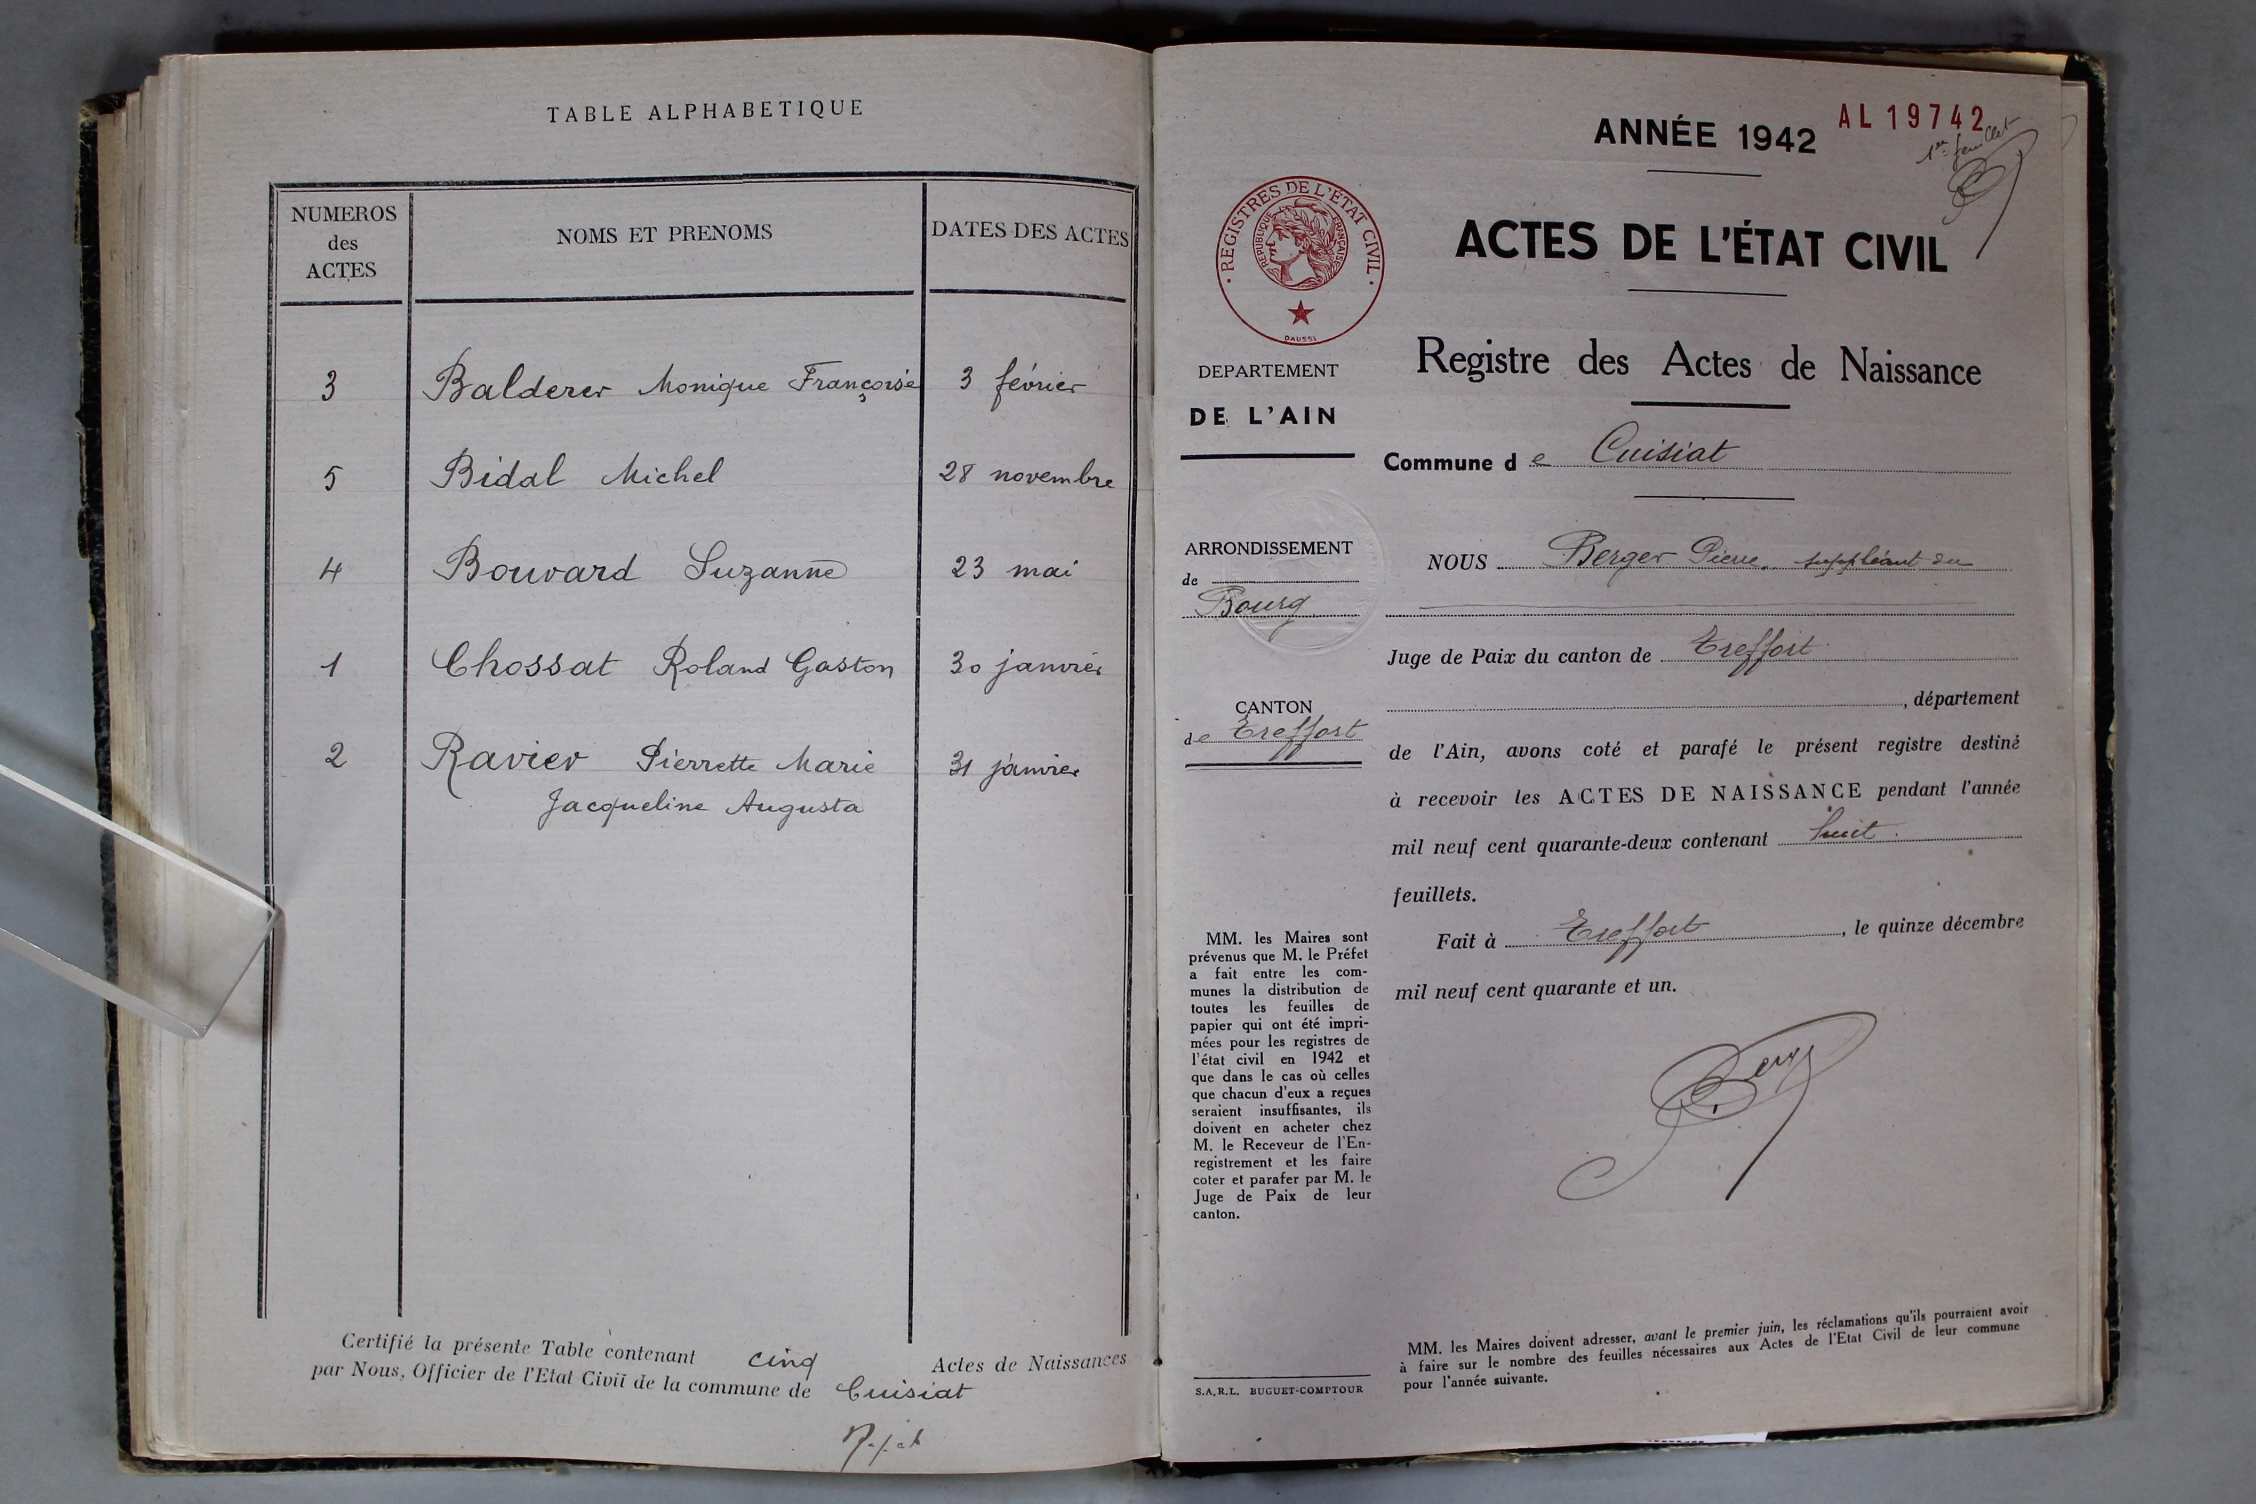 TABLE ALPHABETIQUE
NUMEROS
des
ACTES
NOMS ET PRENOMS
DATES DES ACTES
3 Balderer Monique Françoise 3 février
5 Bidal Michel 28 novembre
4 Bouvard Suzanne 23 mai
1 Chossat Roland Gaston 30 janvier
2 Ravier Pierrette Marie 31 janvier
Jacqueline Augusta
Certifié la présente Table contenant cinq Actes de Naissances
par Nous, Officier de l'Etat Civil de la commune de Cuisiat
ANNÉE 1942
AL 19742
1er feuillet
REGISTRES DE L'ÉTAT CIVIL
REPUBLIQUE FRANÇAISE
DAUSSI
ACTES DE L'ÉTAT CIVIL
DEPARTEMENT
DE L'AIN
Registre des Actes de Naissance
Commune de Cuisiat
ARRONDISSEMENT
de
Bourg
CANTON
de Treffort
NOUS Berger Pierre suppléant du
Juge de Paix du canton de Treffort
, département
de l'Ain, avons coté et parafé le présent registre destiné
à recevoir les ACTES DE NAISSANCE pendant l'année
mil neuf cent quarante-deux contenant huit
feuillets.
Fait à Treffort, le quinze décembre
mil neuf cent quarante et un.
MM. les Maires sont
prévenus que M. le Préfet
a fait entre les com-
munes la distribution de
toutes les feuilles de
papier qui ont été impri-
mées pour les registres de
l'état civil en 1942 et
que dans le cas où celles
que chacun d'eux a reçues
seraient insuffisantes, ils
doivent en acheter chez
M. le Receveur de l'En-
registrement et les faire
coter et parafer par M. le
Juge de Paix de leur
canton.
S.A.R.L. BUGUET-COMPTOUR
MM. les Maires doivent adresser, avant le premier juin, les réclamations qu'ils pourraient avoir
à faire sur le nombre des feuilles nécessaires aux Actes de l'Etat Civil de leur commune
pour l'année suivante.